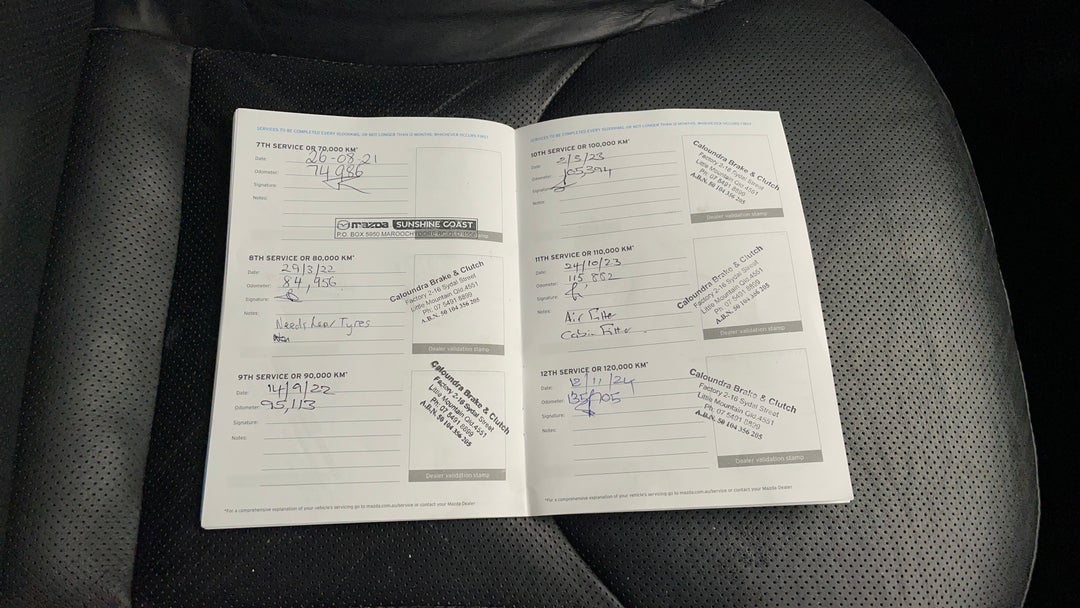 SERVICES TO BE COMPLETED EVERY 10,000KMS, OR NOT LONGER THAN 12 MONTHS, WHICHEVER OCCURS FIRST
7TH SERVICE OR 70,000 KM*
Date: 26-08-21
Odometer: 74,986
Signature:
Notes:
mazda SUNSHINE COAST
P.O. BOX 5950 MAROOCHYDORE
8TH SERVICE OR 80,000 KM*
Date: 29/3/22
Odometer: 84,956
Signature:
Notes:
Needs Rear Tyres
Caloundra Brake & Clutch
Factory 2-16 Sydal Street
Little Mountain Qld.4551
Ph: 07 5491 8899
A.B.N. 50 104 356 205
Dealer validation stamp
9TH SERVICE OR 90,000 KM*
Date: 14/9/22
Odometer: 95,113
Signature:
Notes:
Caloundra Brake & Clutch
Factory 2-16 Sydal Street
Little Mountain Qld.4551
Ph: 07 5491 8899
A.B.N. 50 104 356 205
Dealer validation stamp
*For a comprehensive explanation of your vehicle's servicing go to mazda.com.au/service or contact your Mazda Dealer
SERVICES TO BE COMPLETED EVERY 10,000KMS, OR NOT LONGER THAN 12 MONTHS, WHICHEVER OCCURS FIRST
10TH SERVICE OR 100,000 KM*
Date: 2/5/23
Odometer: 105,394
Signature:
Notes:
Caloundra Brake & Clutch
Factory 2-16 Sydal Street
Little Mountain Qld.4551
Ph: 07 5491 8899
A.B.N. 50 104 356 205
Dealer validation stamp
11TH SERVICE OR 110,000 KM*
Date: 24/10/23
Odometer: 115 882
Signature:
Notes:
Air Filter
Cabin Filter
Caloundra Brake & Clutch
Factory 2-16 Sydal Street
Little Mountain Qld.4551
Ph: 07 5491 8899
A.B.N. 50 104 356 205
Dealer validation stamp
12TH SERVICE OR 120,000 KM*
Date: 12/11/24
Odometer: 135,705
Signature:
Notes:
Caloundra Brake & Clutch
Factory 2-16 Sydal Street
Little Mountain Qld.4551
Ph: 07 5491 8899
A.B.N. 50 104 356 205
Dealer validation stamp
*For a comprehensive explanation of your vehicle's servicing go to mazda.com.au/service or contact your Mazda Dealer